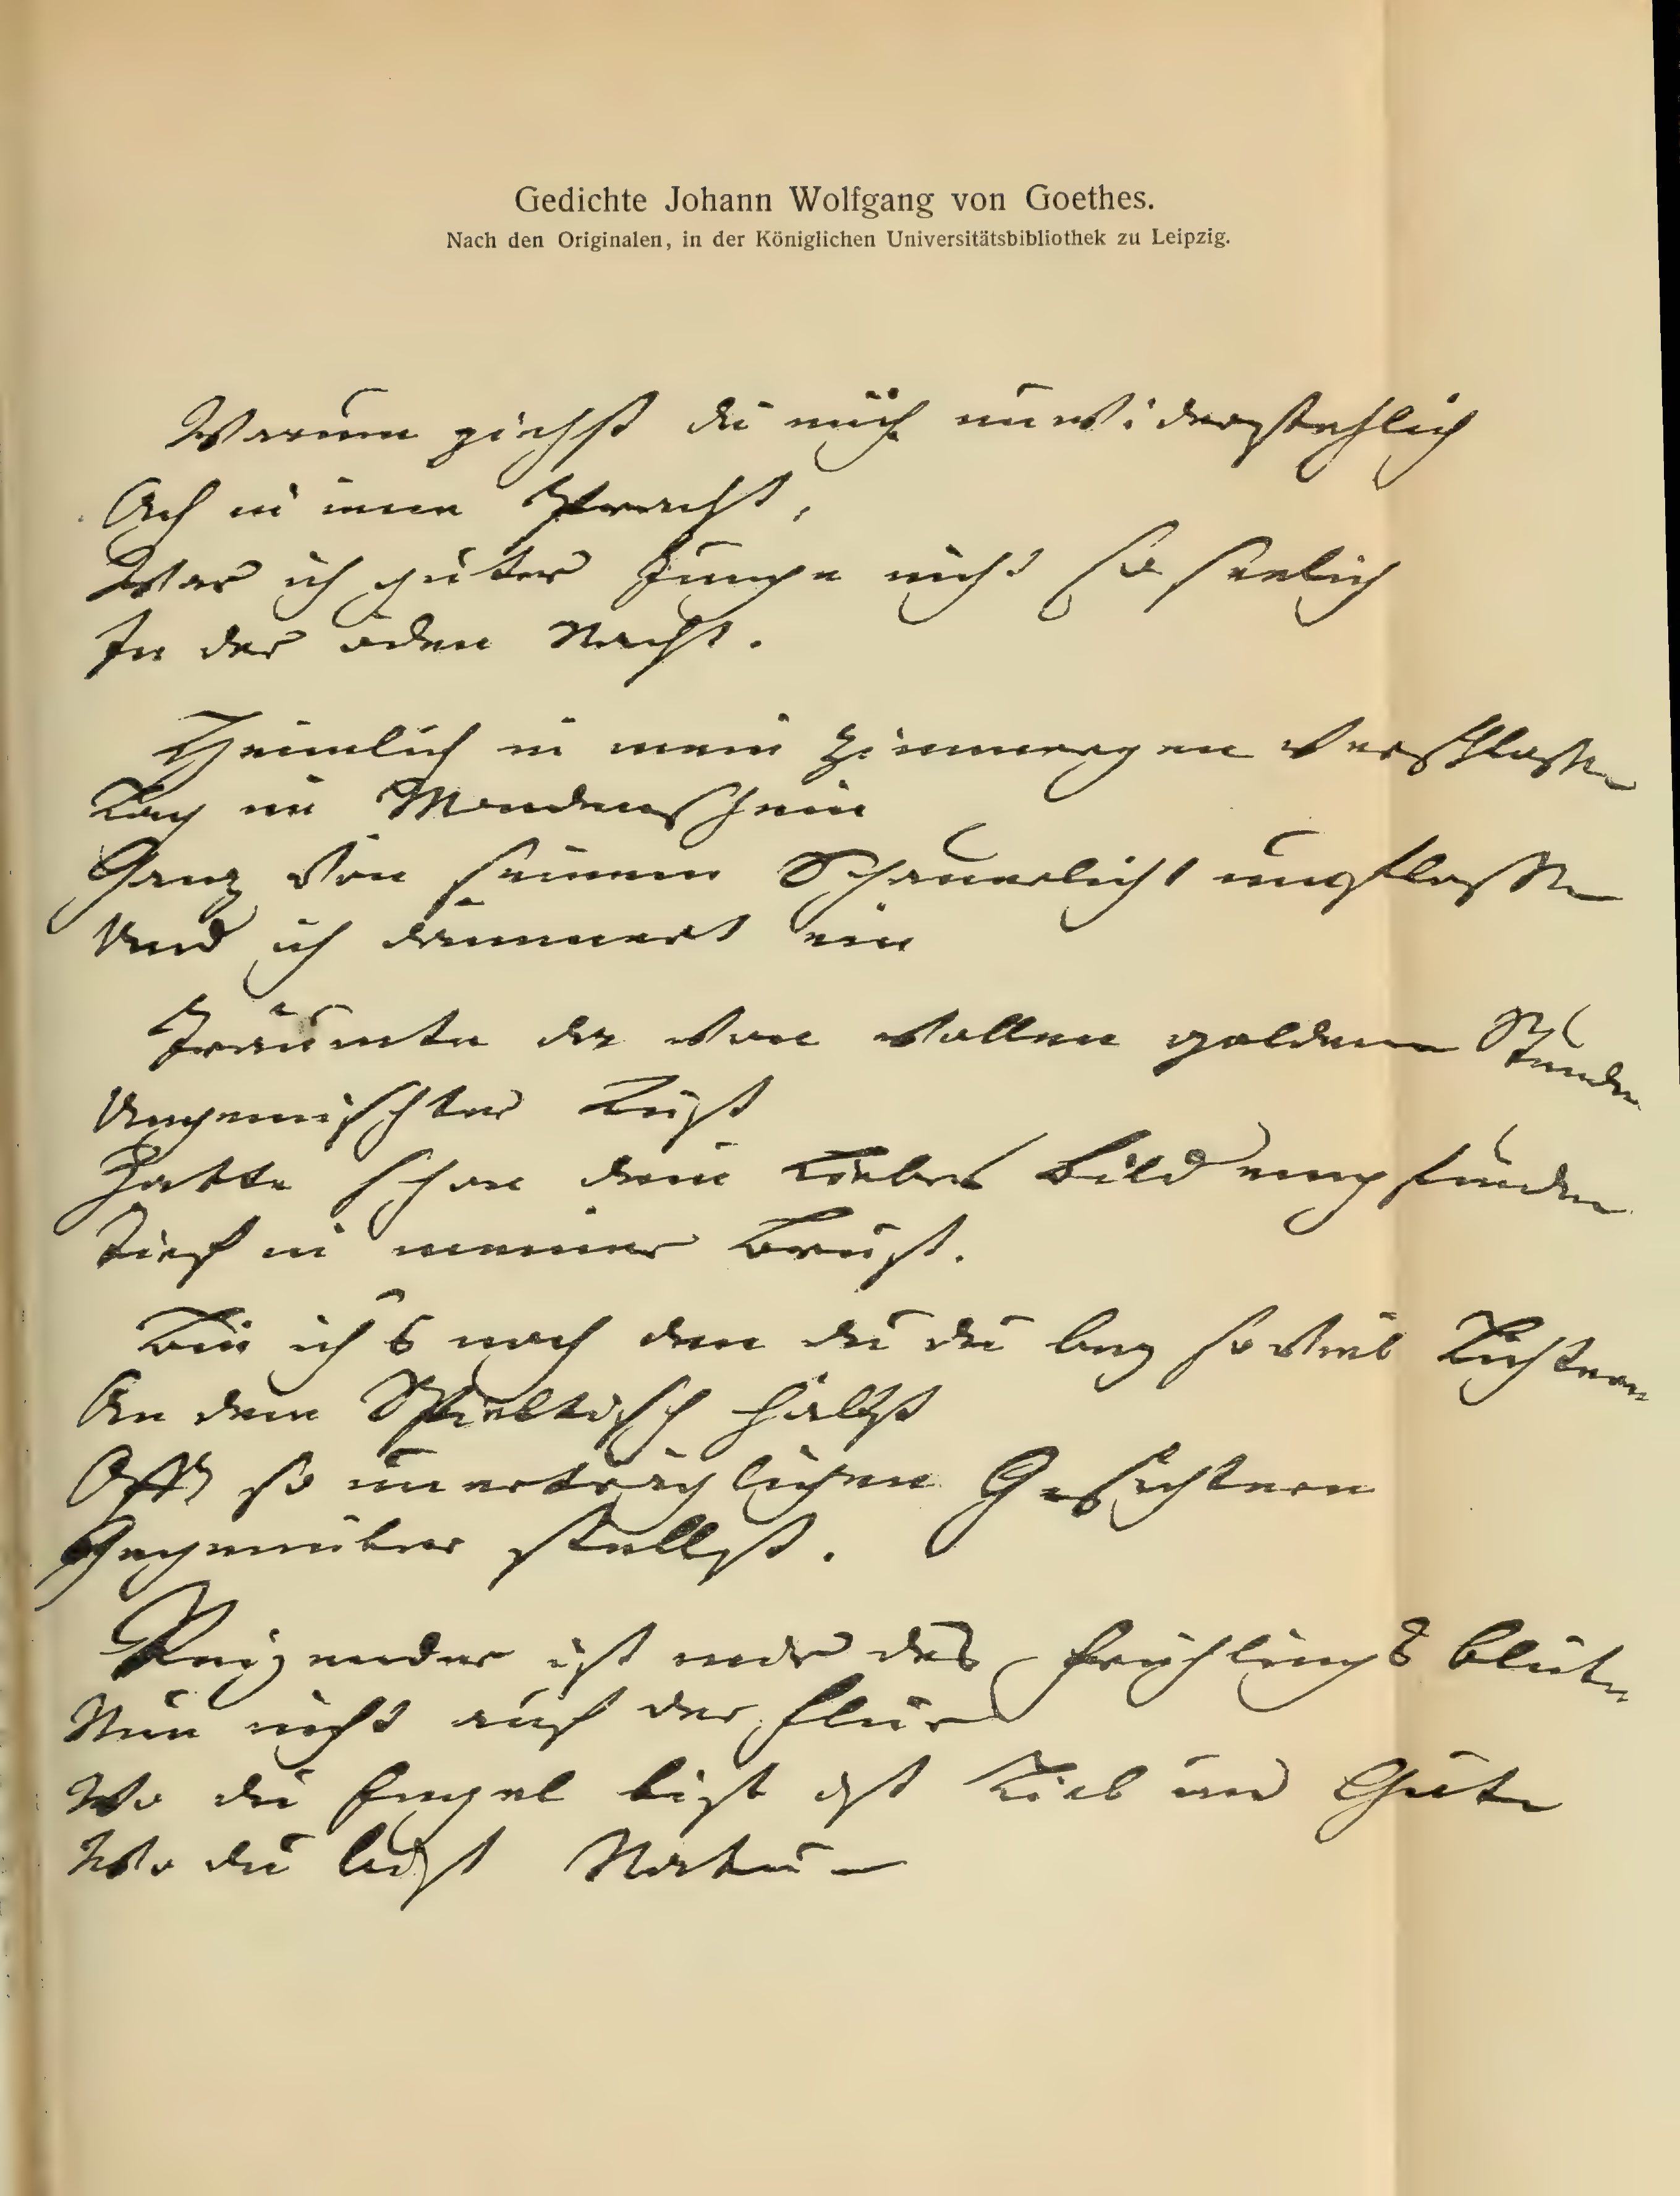 Gedichte Johann Wolfgang von Goethes.
Nach den Originalen, in der Königlichen Universitätsbibliothek zu Leipzig.
Warum ziehst du mich unwiderstehlich
Ach in iene Pracht,
War ich guter Junge nicht so seelich
In der öden Nacht.
Heimlich in mein Zimmergen verschlossen
Lag im Mondenschein
Ganz von seinem Schauerlicht umflossen
Und ich dämmert ein
Träumte da von vollen goldenen Stunden
Ungemischter Lust
Hatte schon dein liebes Bild empfunden
Tief in meiner Brust.
Bin ich's noch den du du bey so viel Lichtern
An dem Spieltisch hältst
Offt so unerträglichen Gesichtern
Gegenüber stellst.
Reizender ist mir des Frühlings Blüte
Nun nicht auf der Flur
Wo du Engel bist ist Lieb und Güte
Wo du bist Natur